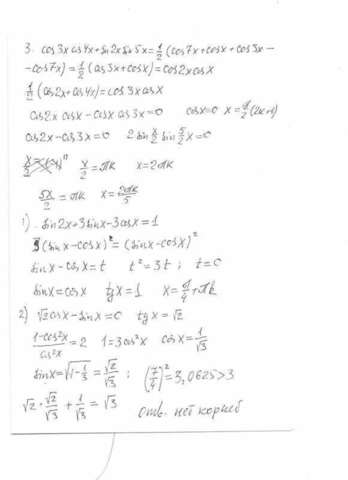 3. cos3x cos4x + sin2x sin5x = 1/2 (cos7x + cosx + cos3x −
− cos7x) = 1/2 (cos3x + cosx) = cos2x cosx
1/2 (cos2x + cos4x) = cos3x cosx
cos2x cosx − cosx cos3x = 0 cosx = 0 x = π/2 (2k+1)
cos2x − cos3x = 0 2 sin x/2 sin 5/2 x = 0
x/2 = πk x = 2πk
5x/2 = πk x = 2πk/5
1) sin2x + 3sinx − 3cosx = 1
3(sinx − cosx) = (sinx − cosx)²
sinx − cosx = t t² = 3t ; t = 0
sinx = cosx tg x = 1 x = π/4 + πk
2) √2 cosx − sinx = 0 tg x = √2
1−cos²x/cos²x = 2 1 = 3cos²x cosx = 1/√3
sinx = √1−1/3 = √2/√3 ; (7/4)² = 3,0625 > 3
√2 · √2/√3 + 1/√3 = √3 отв. нет корней